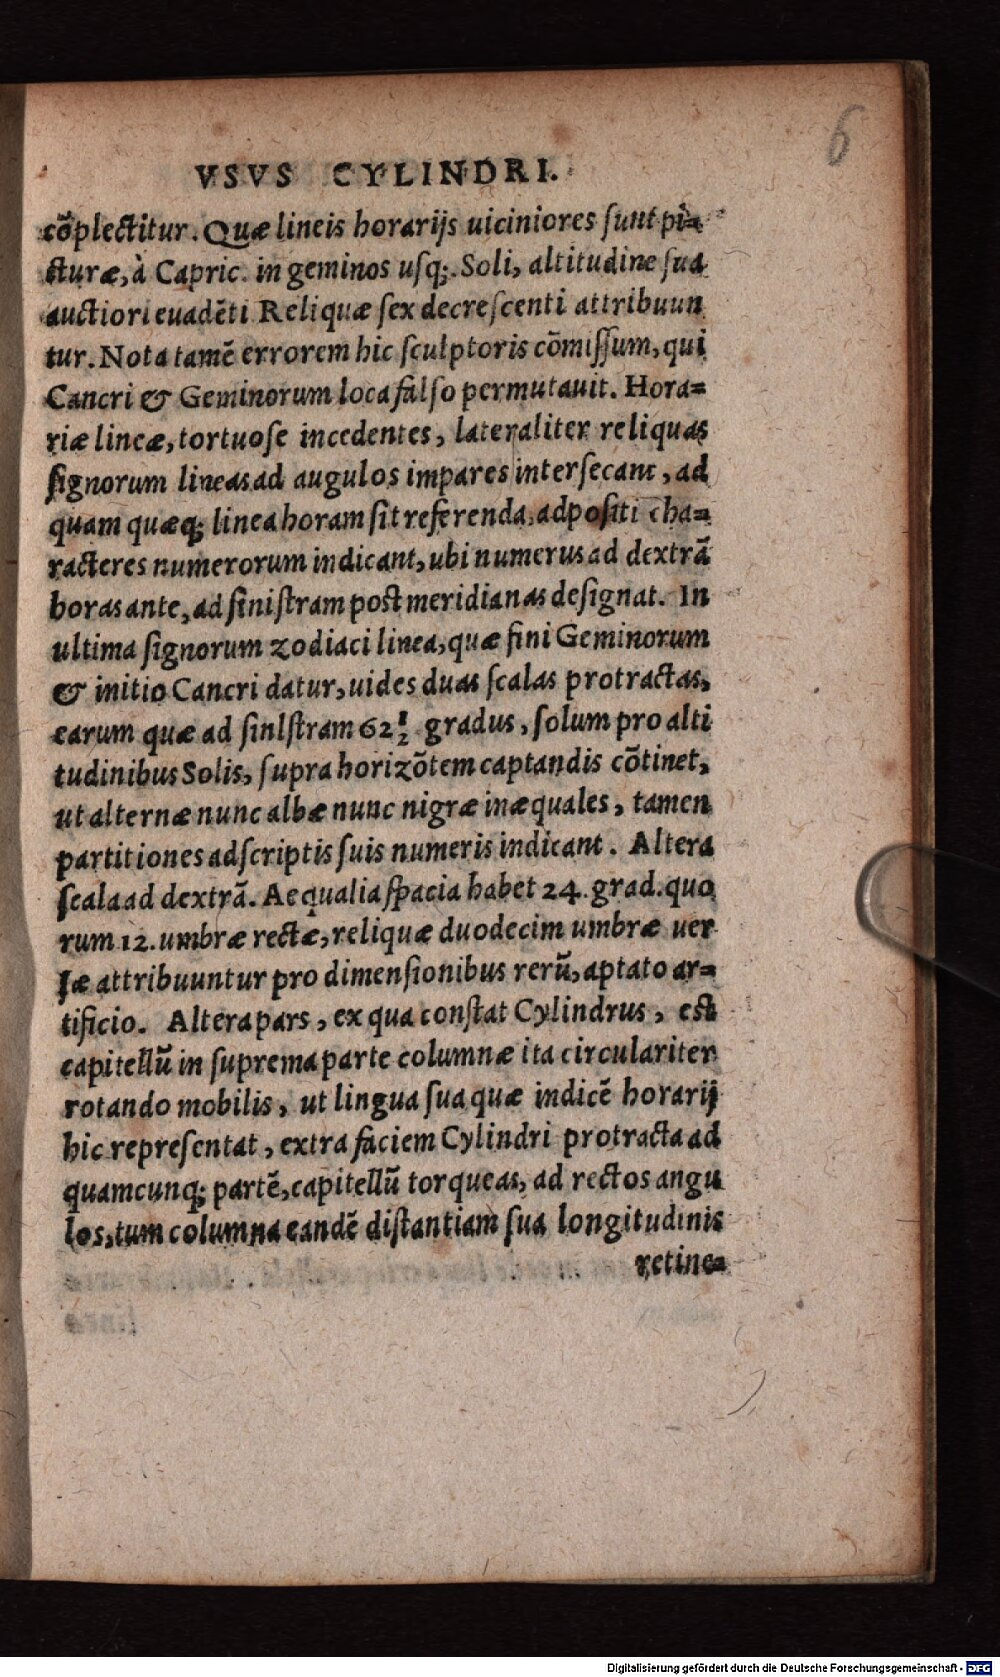 6
VSVS CYLINDRI.
cõplectitur. Quæ lineis horarijs uiciniores sunt pi=
cturæ, à Capric. in geminos usq;. Soli, altitudine sua
auctiori euadẽti Reliquæ sex decrescenti attribuun
tur. Nota tamẽ errorem hic sculptoris cõmissum, qui
Cancri & Geminorum loca falso permutauit. Hora=
riæ lineæ, tortuose incedentes, lateraliter reliquas
signorum lineas ad augulos impares intersecant, ad
quam quæq; linea horam sit referenda, adpositi cha=
racteres numerorum indicant, ubi numerus ad dextrã
horas ante, ad sinistram post meridianas designat. In
ultima signorum zodiaci linea, quæ fini Geminorum
& initio Cancri datur, uides duas scalas protractas,
earum quæ ad sinlstram 62 1/2 gradus, solum pro alti
tudinibus Solis, supra horizõtem captandis cõtinet,
ut alternæ nunc albæ nunc nigræ inæquales, tamen
partitiones adscriptis suis numeris indicant. Altera
scala ad dextrã. Aequalia spacia habet 24. grad. quo
rum 12. umbræ rectæ, reliquæ duodecim umbræ uer
sæ attribuuntur pro dimensionibus rerũ, aptato ar=
tificio. Altera pars, ex qua constat Cylindrus, est
capitellũ in suprema parte columnæ ita circulariter
rotando mobilis, ut lingua sua quæ indicẽ horarij
hic repræsentat, extra faciem Cylindri protracta ad
quamcunq; partẽ, capitellũ torqueas, ad rectos angu
los, tum columna eandẽ distantiam sua longitudinis
retine=
Digitalisierung gefördert durch die Deutsche Forschungsgemeinschaft - DFG